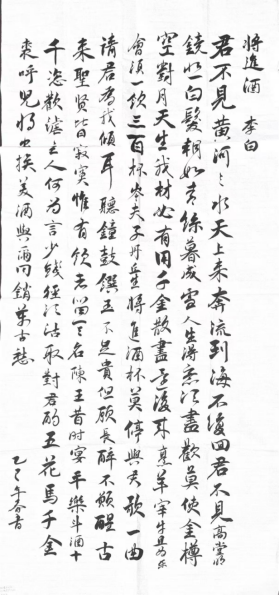 將進酒 李白
君不見黃河之水天上來奔流到海不復回君不見高堂明
鏡悲白髮朝如青絲暮成雪人生得意須盡歡莫使金樽
空對月天生我材必有用千金散盡還復來烹羊宰牛且為樂
會須一飲三百杯岑夫子丹丘生將進酒杯莫停與君歌一曲
請君為我傾耳聽鐘鼓饌玉不足貴但願長醉不願醒古
來聖賢皆寂寞惟有飲者留其名陳王昔時宴平樂斗酒十
千恣歡謔主人何為言少錢徑須沽取對君酌五花馬千金
裘呼兒將出換美酒與爾同銷萬古愁
乙巳年春書